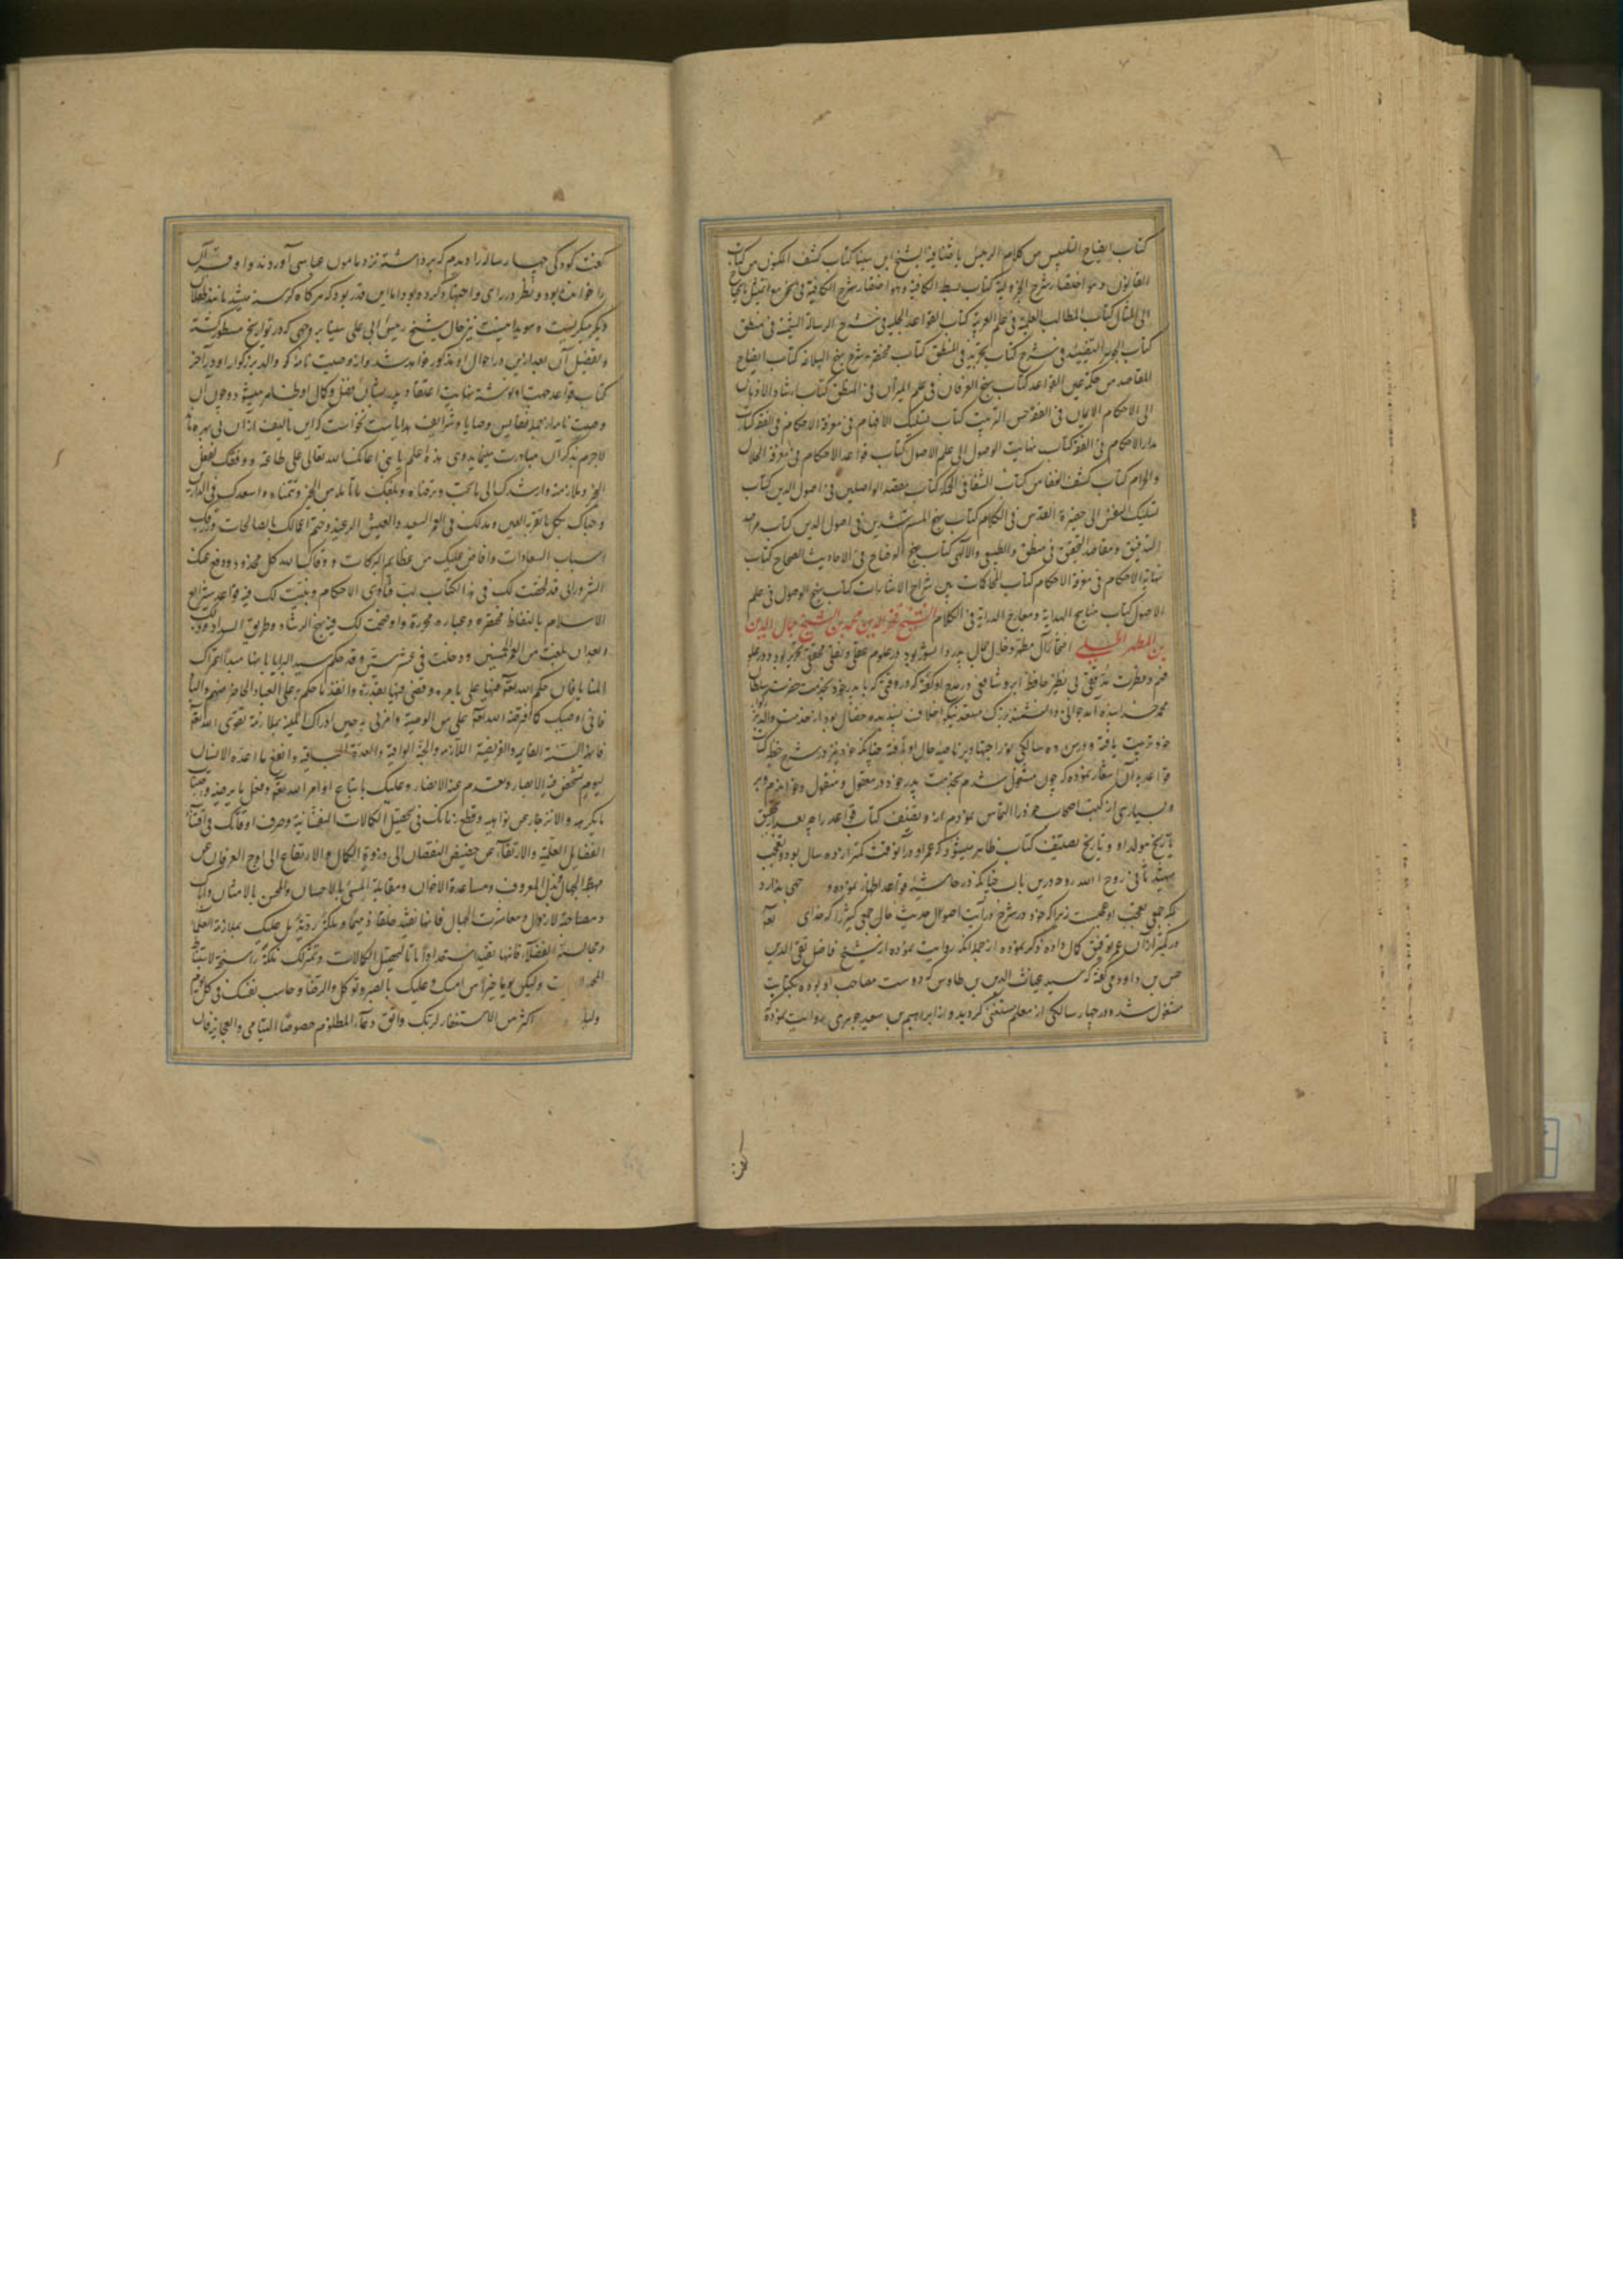 کتاب ایضاح التلبیس من کلام الرئیس باحثنا فیه الشیخ ابن سینا کتاب کشف المکنون من کتاب
القانون و هو اختصار شرح الجزولیة کتاب بسط الکافیة و هو اختصار شرح الکافیة فی النحو
الی المثال کتاب المطالب العلیة فی علم العربیة کتاب القواعد الجلیة فی شرح الرسالة الشمسیة فی منطق
کتاب الجوهر النضید فی شرح کتاب التجرید فی المنطق کتاب مختصر شرح نهج البلاغه کتاب ایضاح
المقاصد من حکمة عین القواعد کتاب نهج العرفان فی علم المیزان فی المنطق کتاب ارشاد الاذهان
الی الاحکام الایمان فی الفقه حسن الترتیب کتاب تسلیک الافهام فی معرفة الاحکام فی الفقه کتاب
مدارالاحکام فی الفقه کتاب نهایت الوصول الی علم الاصول کتاب قواعد الاحکام فی معرفة الحلال
والحرام کتاب کشف الخفا من کتاب الشفا فی الحکمة کتاب مقصد الواصلین فی اصول الدین کتاب
تسلیک النفس الی حضیرة القدس فی الکلام کتاب نهج المسترشدین فی اصول الدین کتاب مراصد
التدقیق و مقاصد التحقیق فی منطق والطبیعی والالهی کتاب نهج الوضاح فی الاحادیث الصحاح کتاب
نهایة الاحکام فی معرفة الاحکام کتاب المحاکمات بین شراح الاشارات کتاب نهج الوصول فی علم
الاصول کتاب مناهج الهدایة و معارج الدرایة فی الکلام الشیخ فخر الدین محمد بن الشیخ جمال الدین
بن المطهر الحلی افتخار آل مطهر و خال جمال پدر دانشور بود در علوم عقلی و نقلی محققی نحریر بود و در علو
فهم و فطرت مدققی بی نظیر حافظ ابرو شافعی در مدح او گفته که در وقتی که با پدر خود بخدمت حضرت سلطان
محمد خدابنده آمد جوانی دانشمند بزرگ مستعد نیکو اخلاق پسندیده خصال بود از خدمت والد بزرگوار
خود تربیت یافته و در سن ده سالگی نور اجتهاد بر ناصیه حال او تافته چنانکه خود نیز در شرح خطبه کتاب
قواعد بآن اشعار نموده که چون مشغول شدم بخدمت پدر خود در معقول و منقول و خواندم بر او
بسیاری از کتب اصحاب خود را التماس نمودم از او تصنیف کتاب قواعد را چه بعد از تحقیق
تاریخ مولد او و تاریخ تصنیف کتاب ظاهر میشود که عمر او در آنوقت کمتر از ده سال بود و تعجب
شهید ثانی روح الله روحه درین باب چنانکه در حاشیه قواعد اظهار نموده و جهی ندارد
بلکه جمی تعجب او عجبست زیرا که خود در شرح درایت اصول حدیث حال جمی کثیر را که خدای تعا
در کمتر ازان عمر توفیق کمال داده ذکر نموده از جمله آنکه روایت نموده از شیخ فاضل تقی الدین
حسن بن داود که گفته که سید غیاث الدین بن طاوس که دوست مصاحب او بوده بکتابت
مشغول شد و در چهار سالگی از معلم مستغنی گردید و از ابراهیم بن سعید جوهری روایت نموده
گفت
گفت کودکی چهار ساله را دیدم که برداشته نزد مامون عباسی آوردند و او قرآن
را خوانده بود و نظر در رای و اجتهاد کرده بود اما این قدر بود که هرگاه گرسنه میشد مانند طفلان
دیگر میگریست و هویدا مینمت نیز حال شیخ رئیس ابی علی سینا بر وجهی که در تواریخ مسطور گشته
و تفصیل آن بعد ازین در احوال او مذکور خواهد شد و از وصیت نامه که والد بزرگوار او در آخر
کتاب قواعد جهت او نوشته نهایت اعتقاد پدر بشان فضل و کمال او ظاهر میشود و چون آن
وصیت نامه از جمله نفایس وصایا و شرایف هدایاست نخواست که این تالیف ازان بی بهره ماند
لاجرم بذکر آن مبادرت مینماید و هی هذه اعلم یا بنی اعانک الله تعالی علی طاعته و وفقک لفعل
الخیر و ملازمته و ارشدک الی ما یحبه و یرضاه و بلغک ما تأمله من الخیر و تتمناه و اسعدک فی الدارین
و حباک بکل ما تقر به العین و مدلک فی العمر السعید والعیش الرغید و ختم اعمالک بالصالحات و رزقک
اسباب السعادات و افاض علیک من عظایم البرکات و وقاک الله کل محذور و دفع عنک
الشرور انی قد لخصت لک فی هذا الکتاب لب فتاوی الاحکام و بینت لک فیه قواعد شرایع
الاسلام بالفاظ مختصره و عباره محررة و اوضحت لک فیه نهج الرشاد و طریق السداد وذلک
بعد ان بلغت من العمر الخمسین و دخلت فی عشر ستین و قد حکم سید البرایا بانها مبدأ اعتراک
المنایا فان حکم الله تعا فیها علی بامره و قضی فیها بقدره و انفذ ما حکم به علی العباد الحاضر منهم والباد
فانی اوصیک کما افترضه الله تعا علی من الوصیة و امرنی به حین ادراک المنیة بملازمة تقوی الله تعا
فانها السنة القایمة والفریضة اللازمه والجنة الواقیة والعدة الباقیة و انفع ما اعده الانسان
لیوم تشخص فیه الابصار و یعدم عنه الانصار و علیک باتباع اوامر الله تعا و فعل ما یرضیه و اجتناب
ما یکرهه والانزجار عن نواهیه و قطع زمانک فی تحصیل الکمالات النفسانیة و صرف اوقاتک فی اقتناء
الفضایل العلمیة والارتقاء عن حضیض النقصان الی ذروة الکمال والارتفاع الی اوج العرفان عن
مهبط الجهال و بذل المعروف و مساعدة الاخوان و مقابلة المسیء بالاحسان والمحسن بالامتنان و ایاک
و مصاحبة الارذال و معاشرت الجهال فانها تفید خلقا ذمیما و ملکة ردیة بل علیک بملازمة العلماء
و مجالسة الفضلاء فانها تفید استعدادا تاما لتحصیل الکمالات و تثمر لک ملکة راسخة لاستنباط
المجهولات ولیکن یومک خیرا من امسک و علیک بالصبر و التوکل والرضا و حاسب نفسک فی کل یوم
ولیلة اکثر من الاستغفار لربک واتق دعاء المظلوم خصوصا الیتامی والعجایز فان